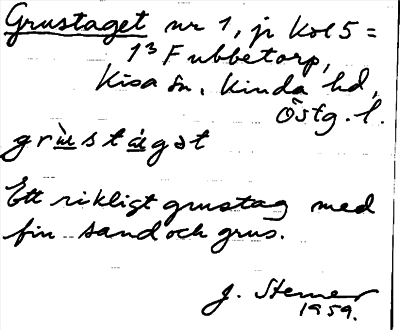 Grustaget nr 1, jr kol 5 =
1³ Fubbetorp,
Kisa sn, Kinda hd,
Östg. l.
grùstágət
Ett rikligt grustag med
fin sand och grus.
J. Sterner
1959.